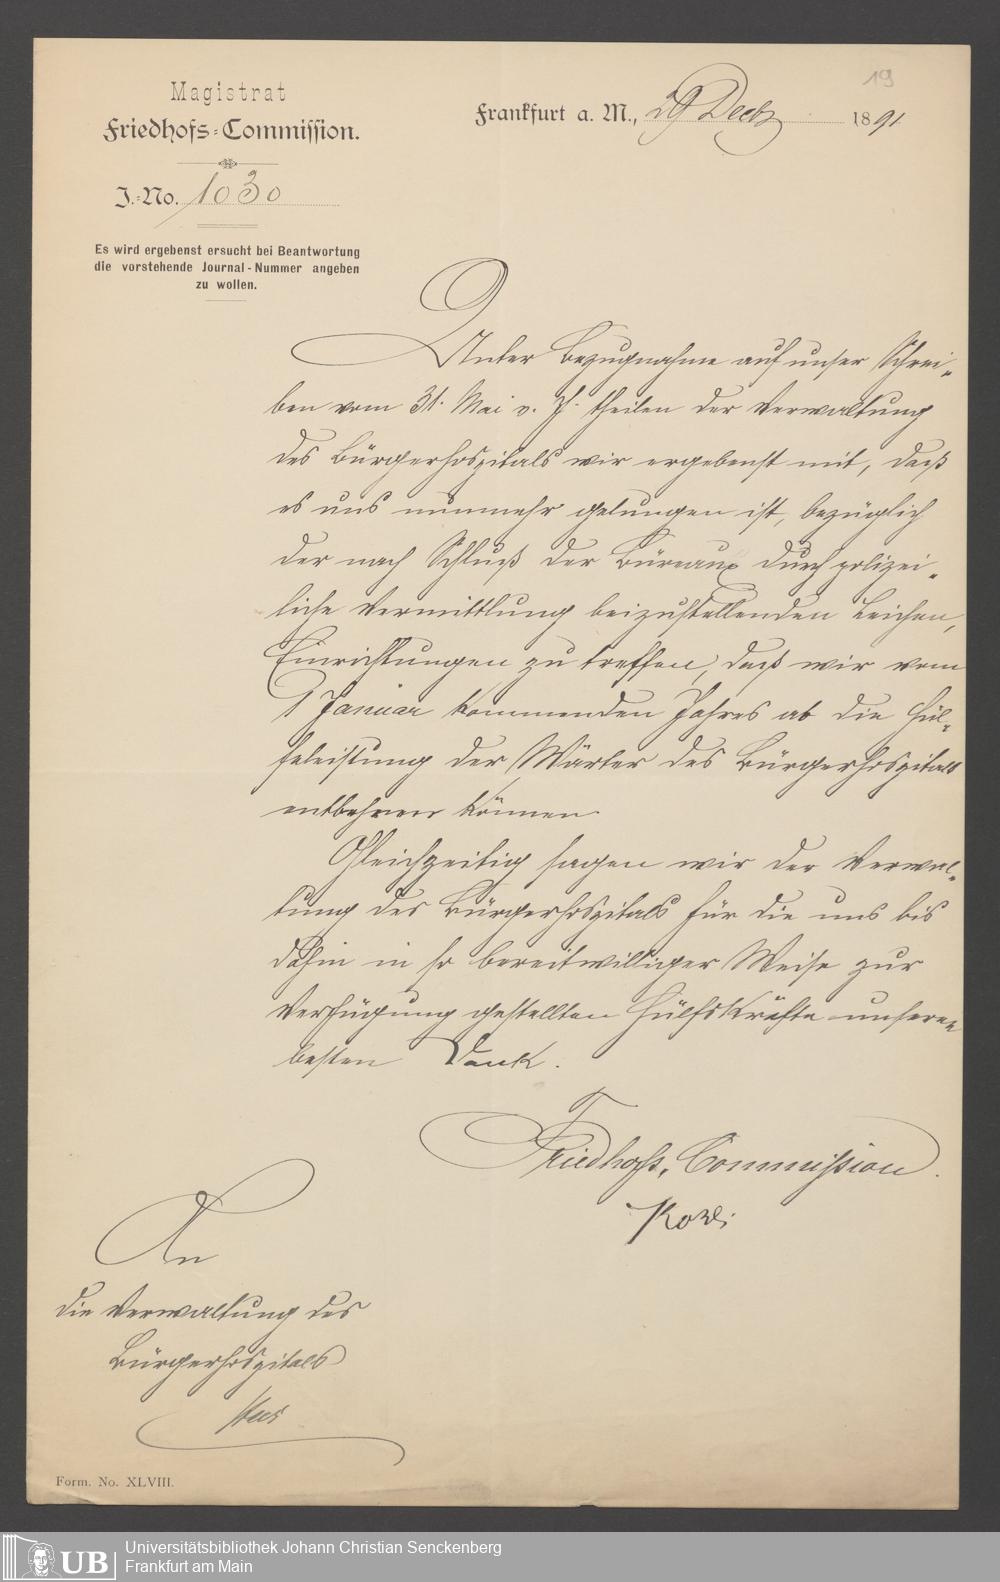 19
Magistrat
Friedhofs-Commission.
Frankfurt a. M., 29 Decbr 1891
J.-No. 1030
Es wird ergebenst ersucht bei Beantwortung
die vorstehende Journal-Nummer angeben
zu wollen.
Unter Bezugnahme auf unser Schrei-
ben vom 31. Mai v. J. theilen der Verwaltung
des Bürgerhospitals wir ergebenst mit, daß
es uns nunmehr gelungen ist, bezüglich
der nach Schluß der Büreaux durch polizei-
liche Vermittlung beizustellenden Leichen,
Einrichtungen zu treffen, daß wir vom
1 Januar kommenden Jahres ab die Hül-
feleistung der Wärter des Bürgerhospitals
entbehren können.
Gleichzeitig sagen wir der Verwal-
tung des Bürgerhospitals für die uns bis
dahin in so bereitwilliger Weise zur
Verfügung gestellten Hülfskräfte unseren
besten Dank.
Friedhofs-Commission.
An
die Verwaltung des
Bürgerhospitals
Form. No. XLVIII.
UB
Universitätsbibliothek Johann Christian Senckenberg
Frankfurt am Main